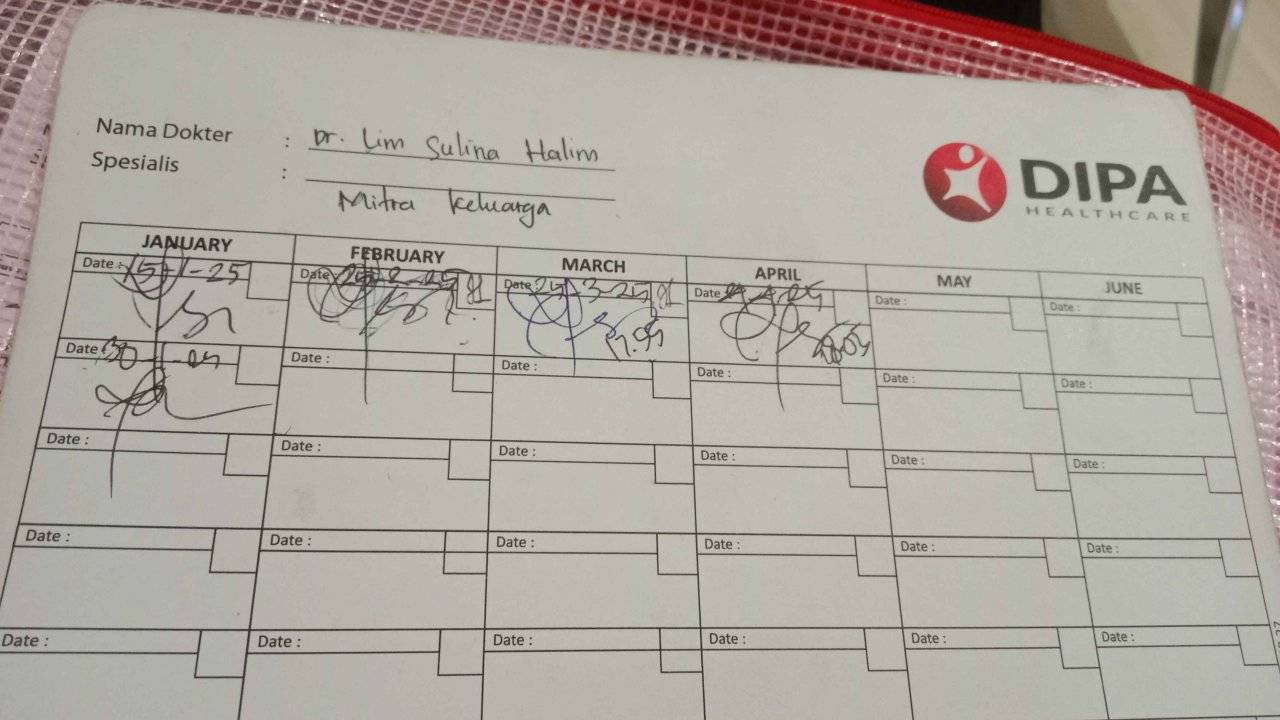 Nama Dokter : Dr. Lim Sulina Halim
Spesialis :
Mitra Keluarga
DIPA
HEALTHCARE
JANUARY FEBRUARY MARCH APRIL MAY JUNE
Date : 15-1-25 Date : Date : 25-3-25 Date : Date : Date :
17.95
Date : 30-1-25 Date : Date : Date : Date : Date :
Date : Date : Date : Date : Date : Date :
Date : Date : Date : Date : Date : Date :
Date : Date : Date : Date : Date : Date :